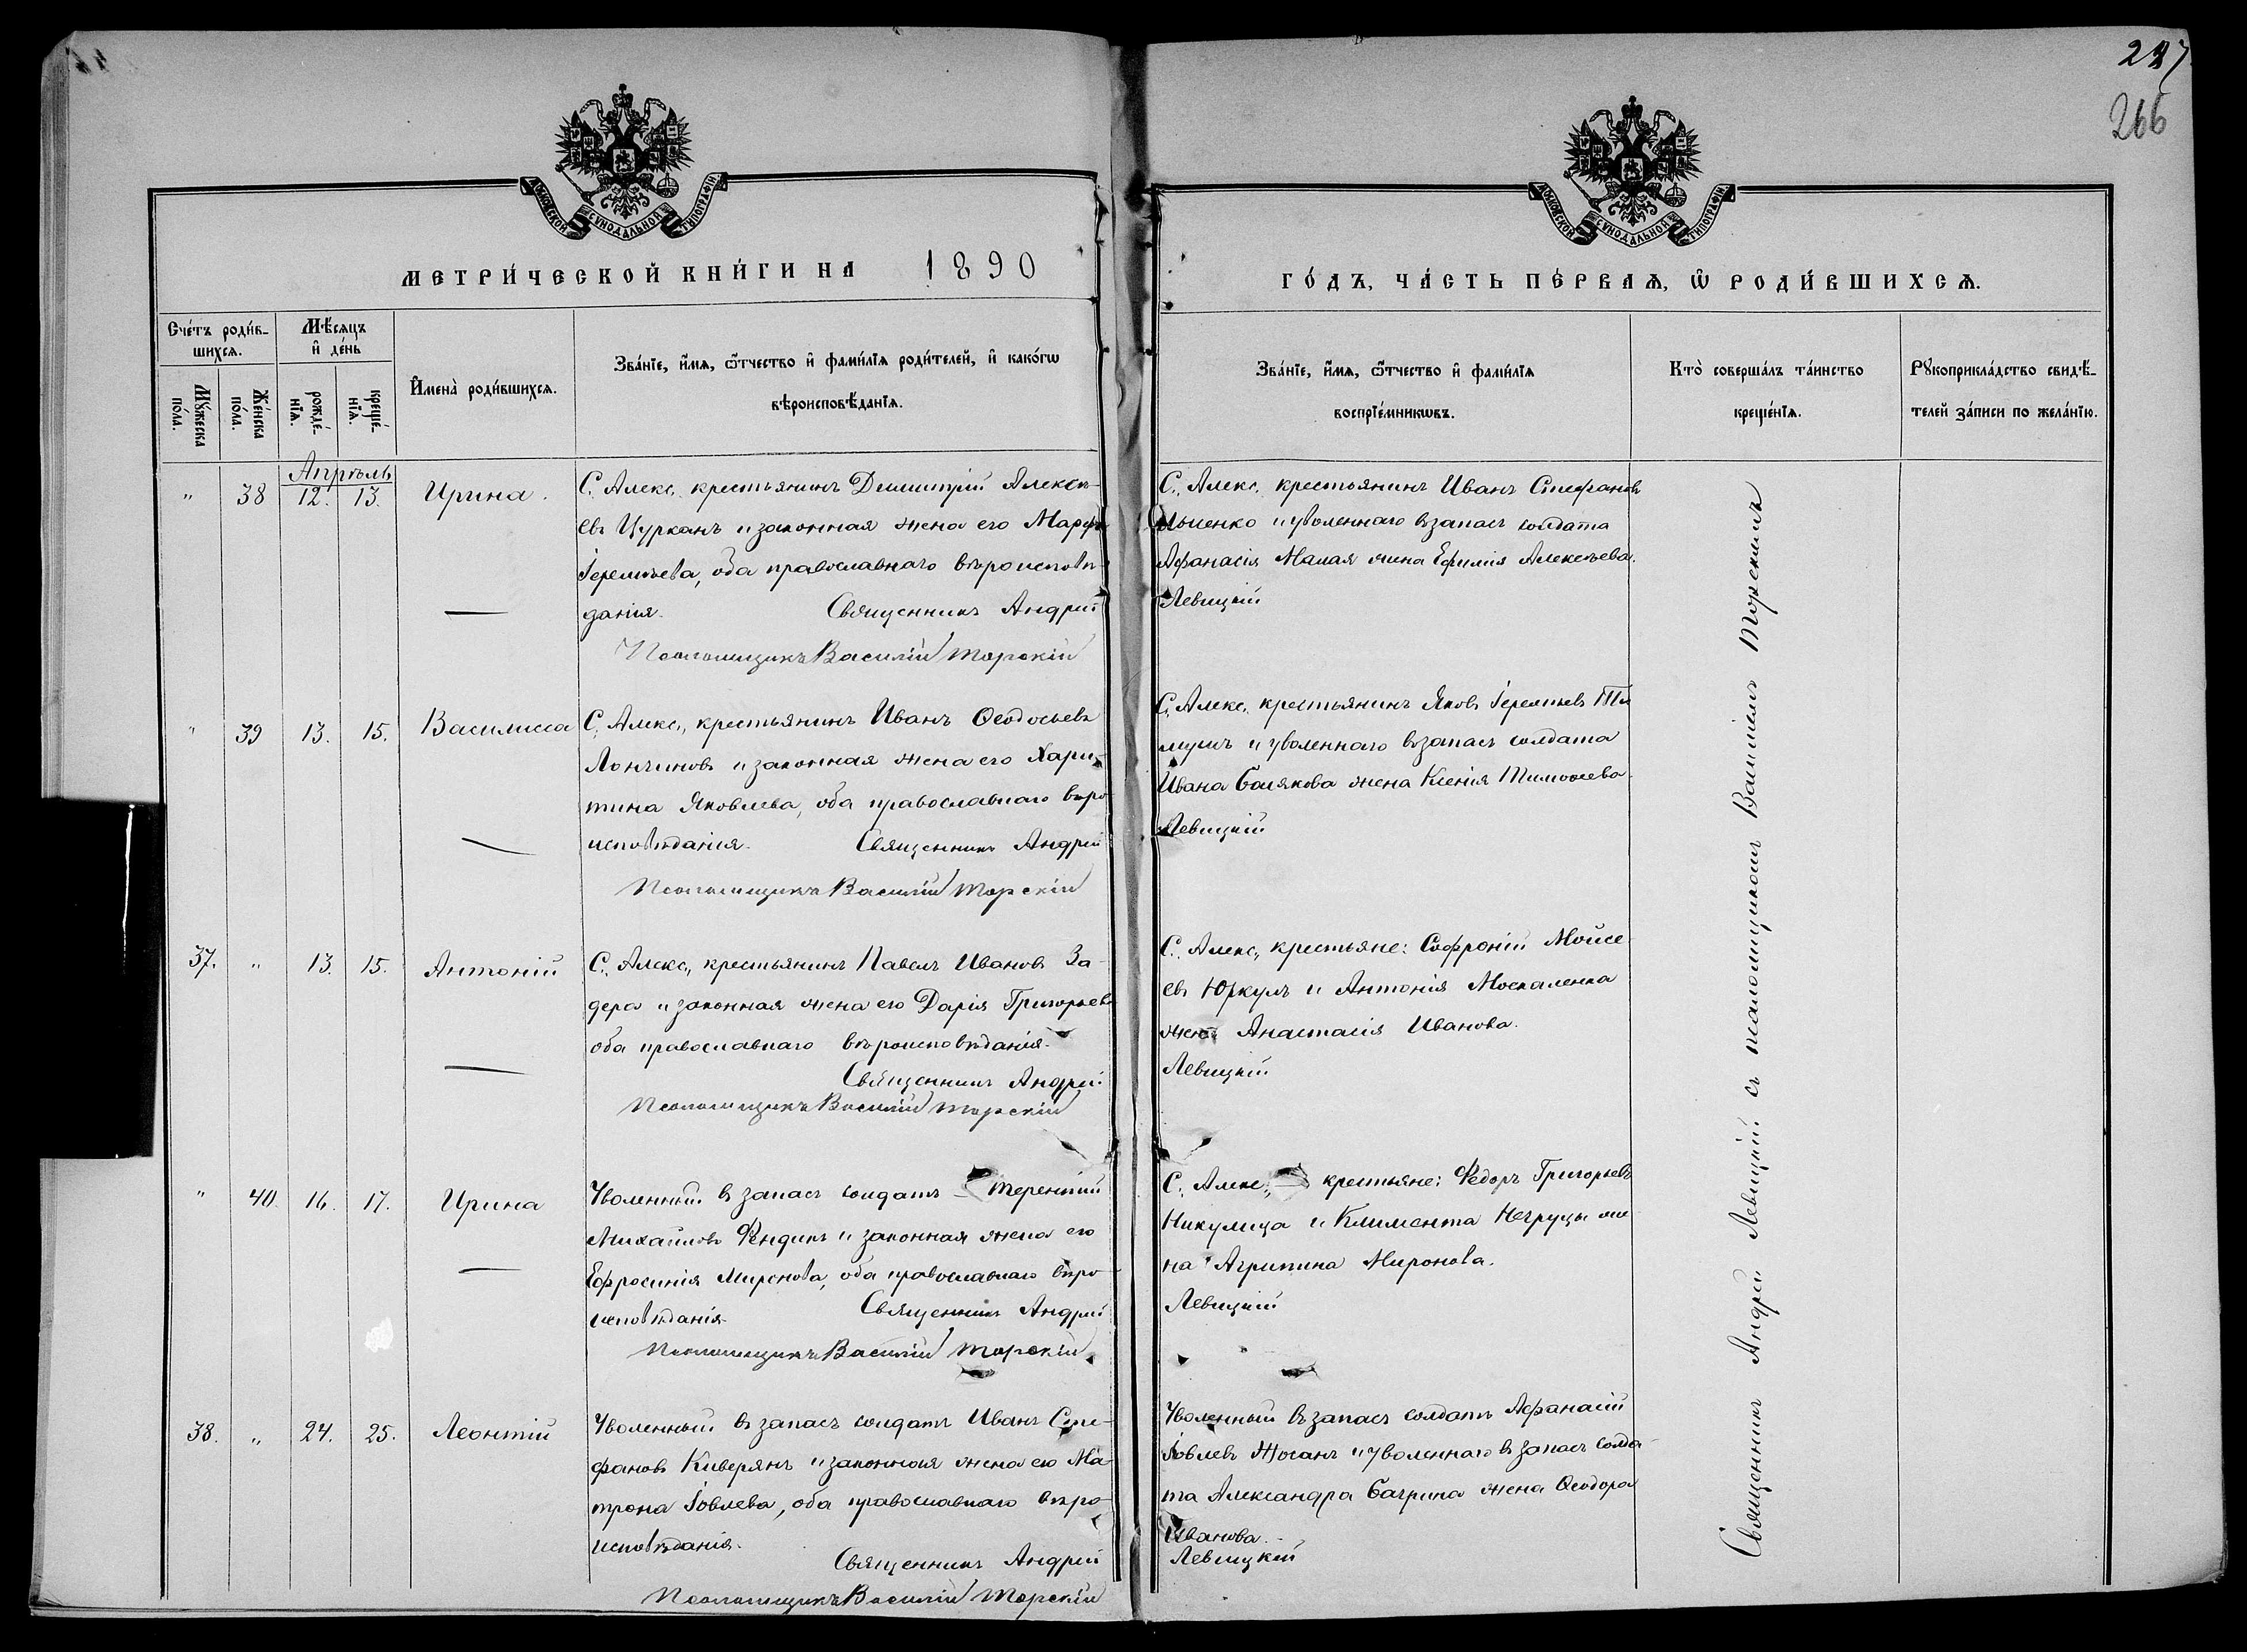 247
266
МОСКОВСКОЙ СѴНОДАЛЬНОЙ ТИПОГРАФІИ
МОСКОВСКОЙ СѴНОДАЛЬНОЙ ТИПОГРАФІИ
МЕТРИ́ЧЕСКОЙ КНИ́ГИ НА 1890
ГО́ДЪ, ЧА́СТЬ ПЕ́РВАѦ, Ѽ РОДИ́ВШИХСѦ.
Сче́тъ роди́в-
шихсѧ.
Мѣ́сѧцъ
и҆ де́нь
Мꙋ́жеска
по́ла.
Же́нска
по́ла.
рожде́-
нїѧ.
креще́-
нїѧ.
И҆мена̀ роди́вшихсѧ.
Зва́нїе, и҆́мѧ, ѻ҆́тчество и҆ фами́лїѧ роди́телей, и҆ како́гѡ
вѣроисповѣ́данїѧ.
Зва́нїе, и҆́мѧ, ѻ҆́тчество и҆ фами́лїѧ
воспрїе́мникѡвъ.
Кто̀ соверша́лъ та́инство
креще́нїѧ.
Рꙋкоприкла́дство свидѣ́-
телей за́писи по жела́нїю.
Апрѣль
" 38 12. 13. Ирина.
С. Алекс. крестьянинъ Димитрій Алексѣ-
евъ Цурканъ и законная жена его Марфа
Іереміева, оба православнаго вѣроисповѣ-
данія. Священникъ Андрей
Псаломщикъ Василій Торскій
С. Алекс. крестьянинъ Иванъ Стефановъ
и уволеннаго въ запасъ солдата
Афанасія Малая жена Ефимія Алексѣева.
Левицкій
" 39 13. 15. Василисса
С. Алекс. крестьянинъ Иванъ Ѳеодосьевъ
Лончиновъ и законная жена его Хари-
тина Яковлева, оба православнаго вѣро
исповѣданія. Священникъ Андрей
Псаломщикъ Василій Торскій
С. Алекс. крестьянинъ Яковъ
и уволеннаго въ запасъ солдата
Ивана Болякова жена Ксенія Тимоѳеева.
Левицкій
37. " 13. 15. Антоній
С. Алекс. крестьянинъ Павелъ Ивановъ За-
дера и законная жена его Дарія Григорьева
оба православнаго вѣроисповѣданія.
Священникъ Андрей
Псаломщикъ Василій Торскій
С. Алекс. крестьяне: Софроній Мойсе-
евъ Юркулъ и Антонія Москаленка
жена Анастасія Иванова.
Левицкій
" 40. 16. 17. Ирина
Уволенный въ запасъ солдатъ Терентій
Михайловъ Фендикъ и законная жена его
Ефросинія Миронова, оба православнаго вѣро-
исповѣданія. Священникъ Андрей
Псаломщикъ Василій Торскій
С. Алекс. крестьяне: Ѳедоръ Григорьевъ
Никулица и Климента Негруцы же-
на Агрипина Миронова.
Левицкій
38. " 24. 25. Леонтій
Уволенный въ запасъ солдатъ Иванъ Сте-
фановъ Киверянъ и законная жена его Ма-
трона Іовлева, оба православнаго вѣро-
исповѣданія.
Священникъ Андрей
Псаломщикъ Василій Торскій
Уволенный въ запасъ солдатъ Афанасій
Іовлевъ Жосанъ и уволеннаго въ запасъ солда-
та Александра Багрина жена Ѳеодора
Иванова.
Левицкій
Священникъ Андрей Левицкій съ псаломщикомъ Василіемъ Торскимъ